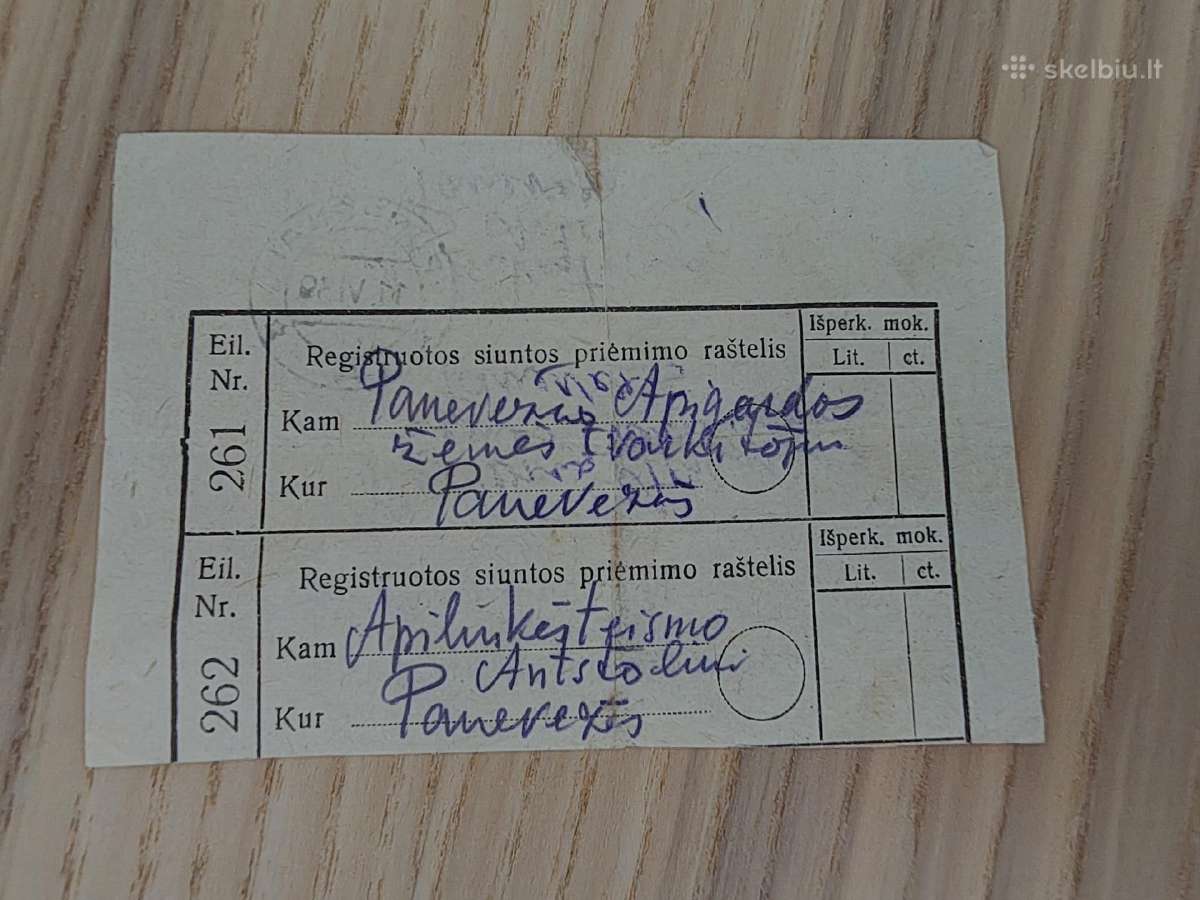 skelbiu.lt
Eil. Nr. 261
Registruotos siuntos priėmimo raštelis
Išperk. mok.
Lit. ct.
Kam Panevėžio Apigardos
žemės tvarkitojui
Kur Panevėžis
Eil. Nr. 262
Registruotos siuntos priėmimo raštelis
Išperk. mok.
Lit. ct.
Kam Apilinkės teismo
P Antstoliui
Kur Panevėžis